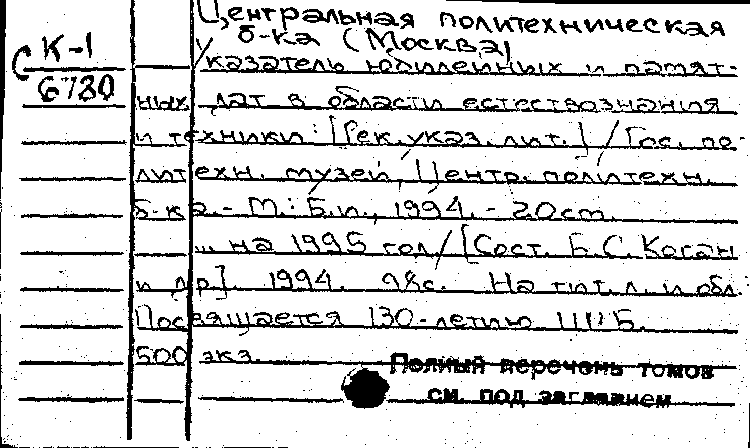 Центральная политехническая
б-ка (Москва)
С К-1
6730
Указатель юбилейных и памят-
ных дат в области естествознания
и техники: [Рек. указ. лит.] / Гос. по-
литехн. музей, Центр. политехн.
б-ка. - М.: Б.и., 1994. - 20 cm.
... на 1995 год / [Сост. Б.С. Коган
и др]. 1994. с. На тит. л. и обл.:
Посвящается 130-летию ЦПБ.
500 экз.
Полный перечень томов
см. под заглавием